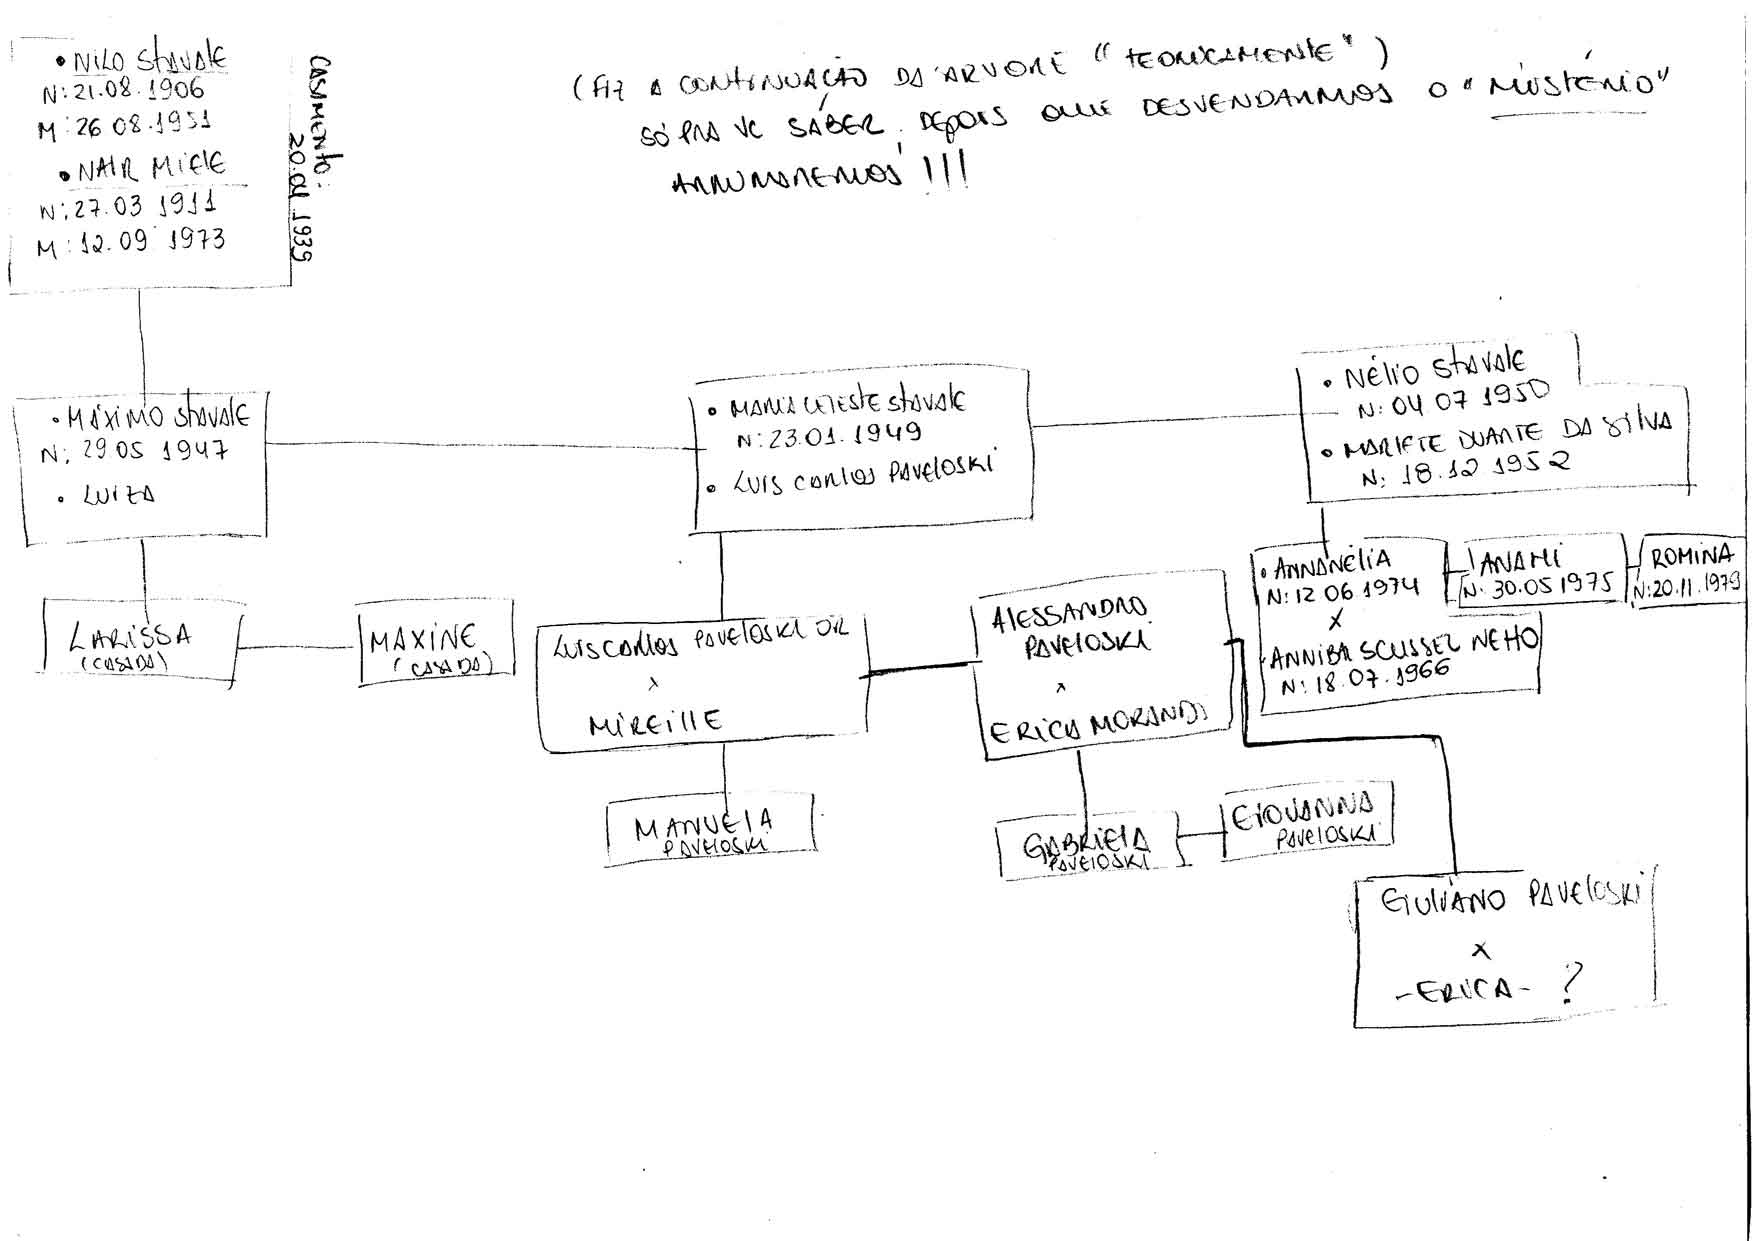 • NILO StAVALE
N: 21.08.1906
M: 26 08.1951
• NAIR MIELE
N: 27.03 1911
M: 12.09 1973
CASAMENTO:
20.04.1939
(FIZ A CONTINUAÇÃO DA ARVORE "TEORICAMENTE")
SÓ PRA VC SABER. DEPOIS QUE DESVENDARMOS O "MISTÉRIO"
ARRUMAREMOS !!!
• MÁXIMO StAVALE
N: 29.05 1947
• LUIZA
• MARIA CELESTE StAVALE
N: 23.01.1949
• LUIS CARLOS PAVELOSKI
• NÉLIO StAVALE
N: 04 07 1950
• MARIETE DUARTE DA SILVA
N: 18.12 1952
• ANNANÉLIA
N: 12 06 1974
X
ANNIBA SCUSSEL NEHO
N: 18.07.1966
ANAMI
N: 30.05 1975
ROMINA
N: 20.11.1979
LARISSA
(CASADA)
MAXINE
(CASADA)
LUIS CARLOS PAVELOSKI JR
X
MIREILLE
ALESSANDRO
PAVELOSKI
X
ERICA MORANDI
MANUELA
PAVELOSKI
GABRIELA
PAVELOSKI
GIOVANNA
PAVELOSKI
GIULIANO PAVELOSKI
X
- ERICA - ?